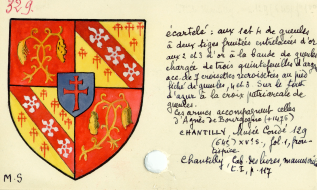 329
écartelé : aux 1 et 4 de gueules
à deux tiges fruitées entrelacées d'or
aux 2 et 3 d'or à la bande de gueules
chargée de trois quintefeuilles d'argent
acc. de 7 croisettes recroisetées au pied
fiché de gueules, 4 et 3. Sur le tout
d'azur à la croix patriarcale de
gueules.
Ces armes accompagnent celles
d'Agnès de Bourgogne (+1476)
CHANTILLY, Musée Condé 129
XVe s., fol. 1, fron-
tispice.
Chantilly, Cab. des livres, manuscrits
t. I, p. 117
M·S